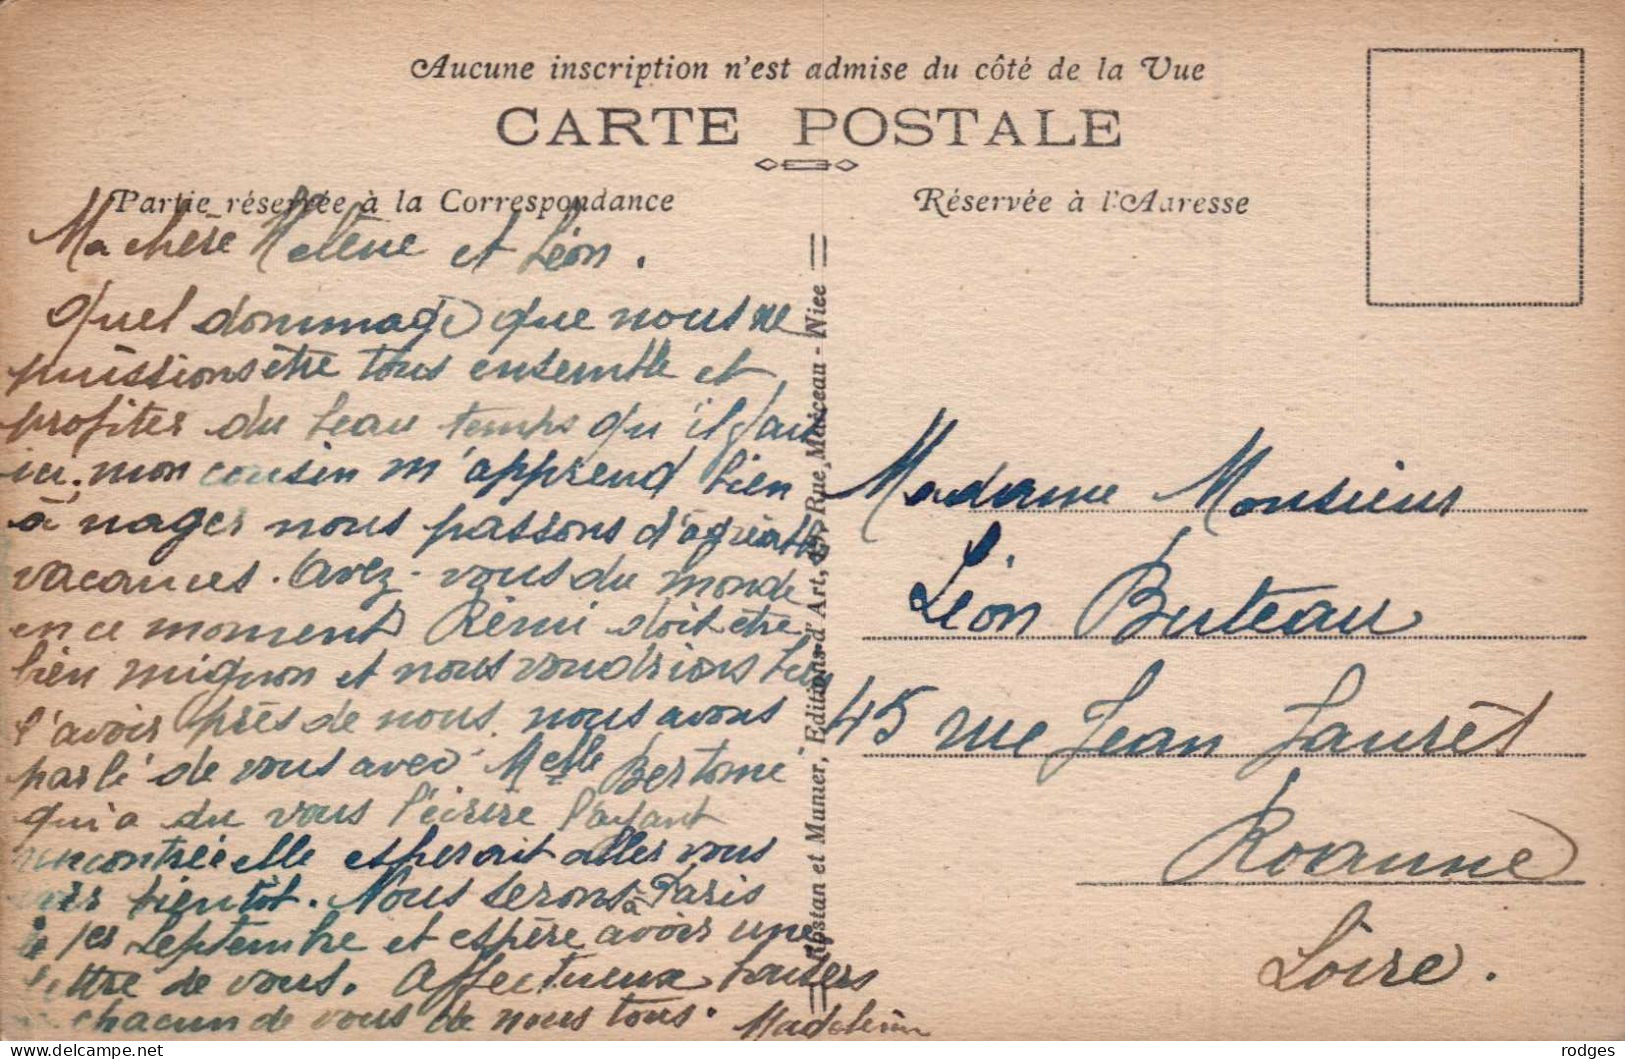 Aucune inscription n'est admise du côté de la Vue
CARTE POSTALE
Partie réservée à la Correspondance
Réservée à l'Adresse
Ma chère Hélène et Léon.
Quel dommage que nous ne
puissions être tous ensemble et
profiter du beau temps qu'il fait
ici, mon cousin m'apprend bien
à nager nous passons d'agréables
vacances. Avez-vous du monde
en ce moment Rémi doit être
bien mignon et nous voudrions bien
l'avoir près de nous. nous avons
parlé de vous avec Melle Bertome
qui a du vous l'écrire l'ayant
rencontrée elle esperait aller vous
voir bientôt. Nous serons à Paris
le 1er Septembre et espère avoir une
lettre de vous. Affectueux baisers
à chacun de vous de nous tous. Madeleine
Rostan et Munier, Editions d'Art, Rue Marceau - Nice
Madame Monsieur
Léon Buteau
45 rue Jean Jaurès
Roanne
Loire.
delcampe.net
rodges